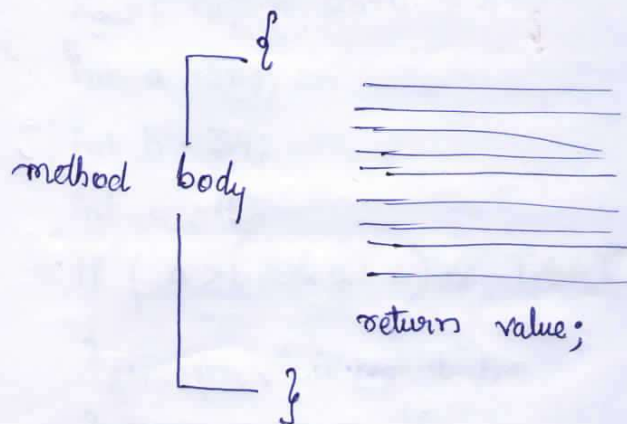 {
method body
return value;
}